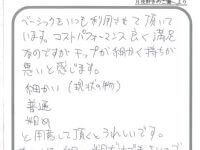 ベーシックをいつも利用させて頂いて
います。コストパフォーマンス良く満足
なのですがチップが細かく持ちが
悪いと感じます。
細かい(現状の物)
普通
粗め
と用意して頂くとうれしいです。